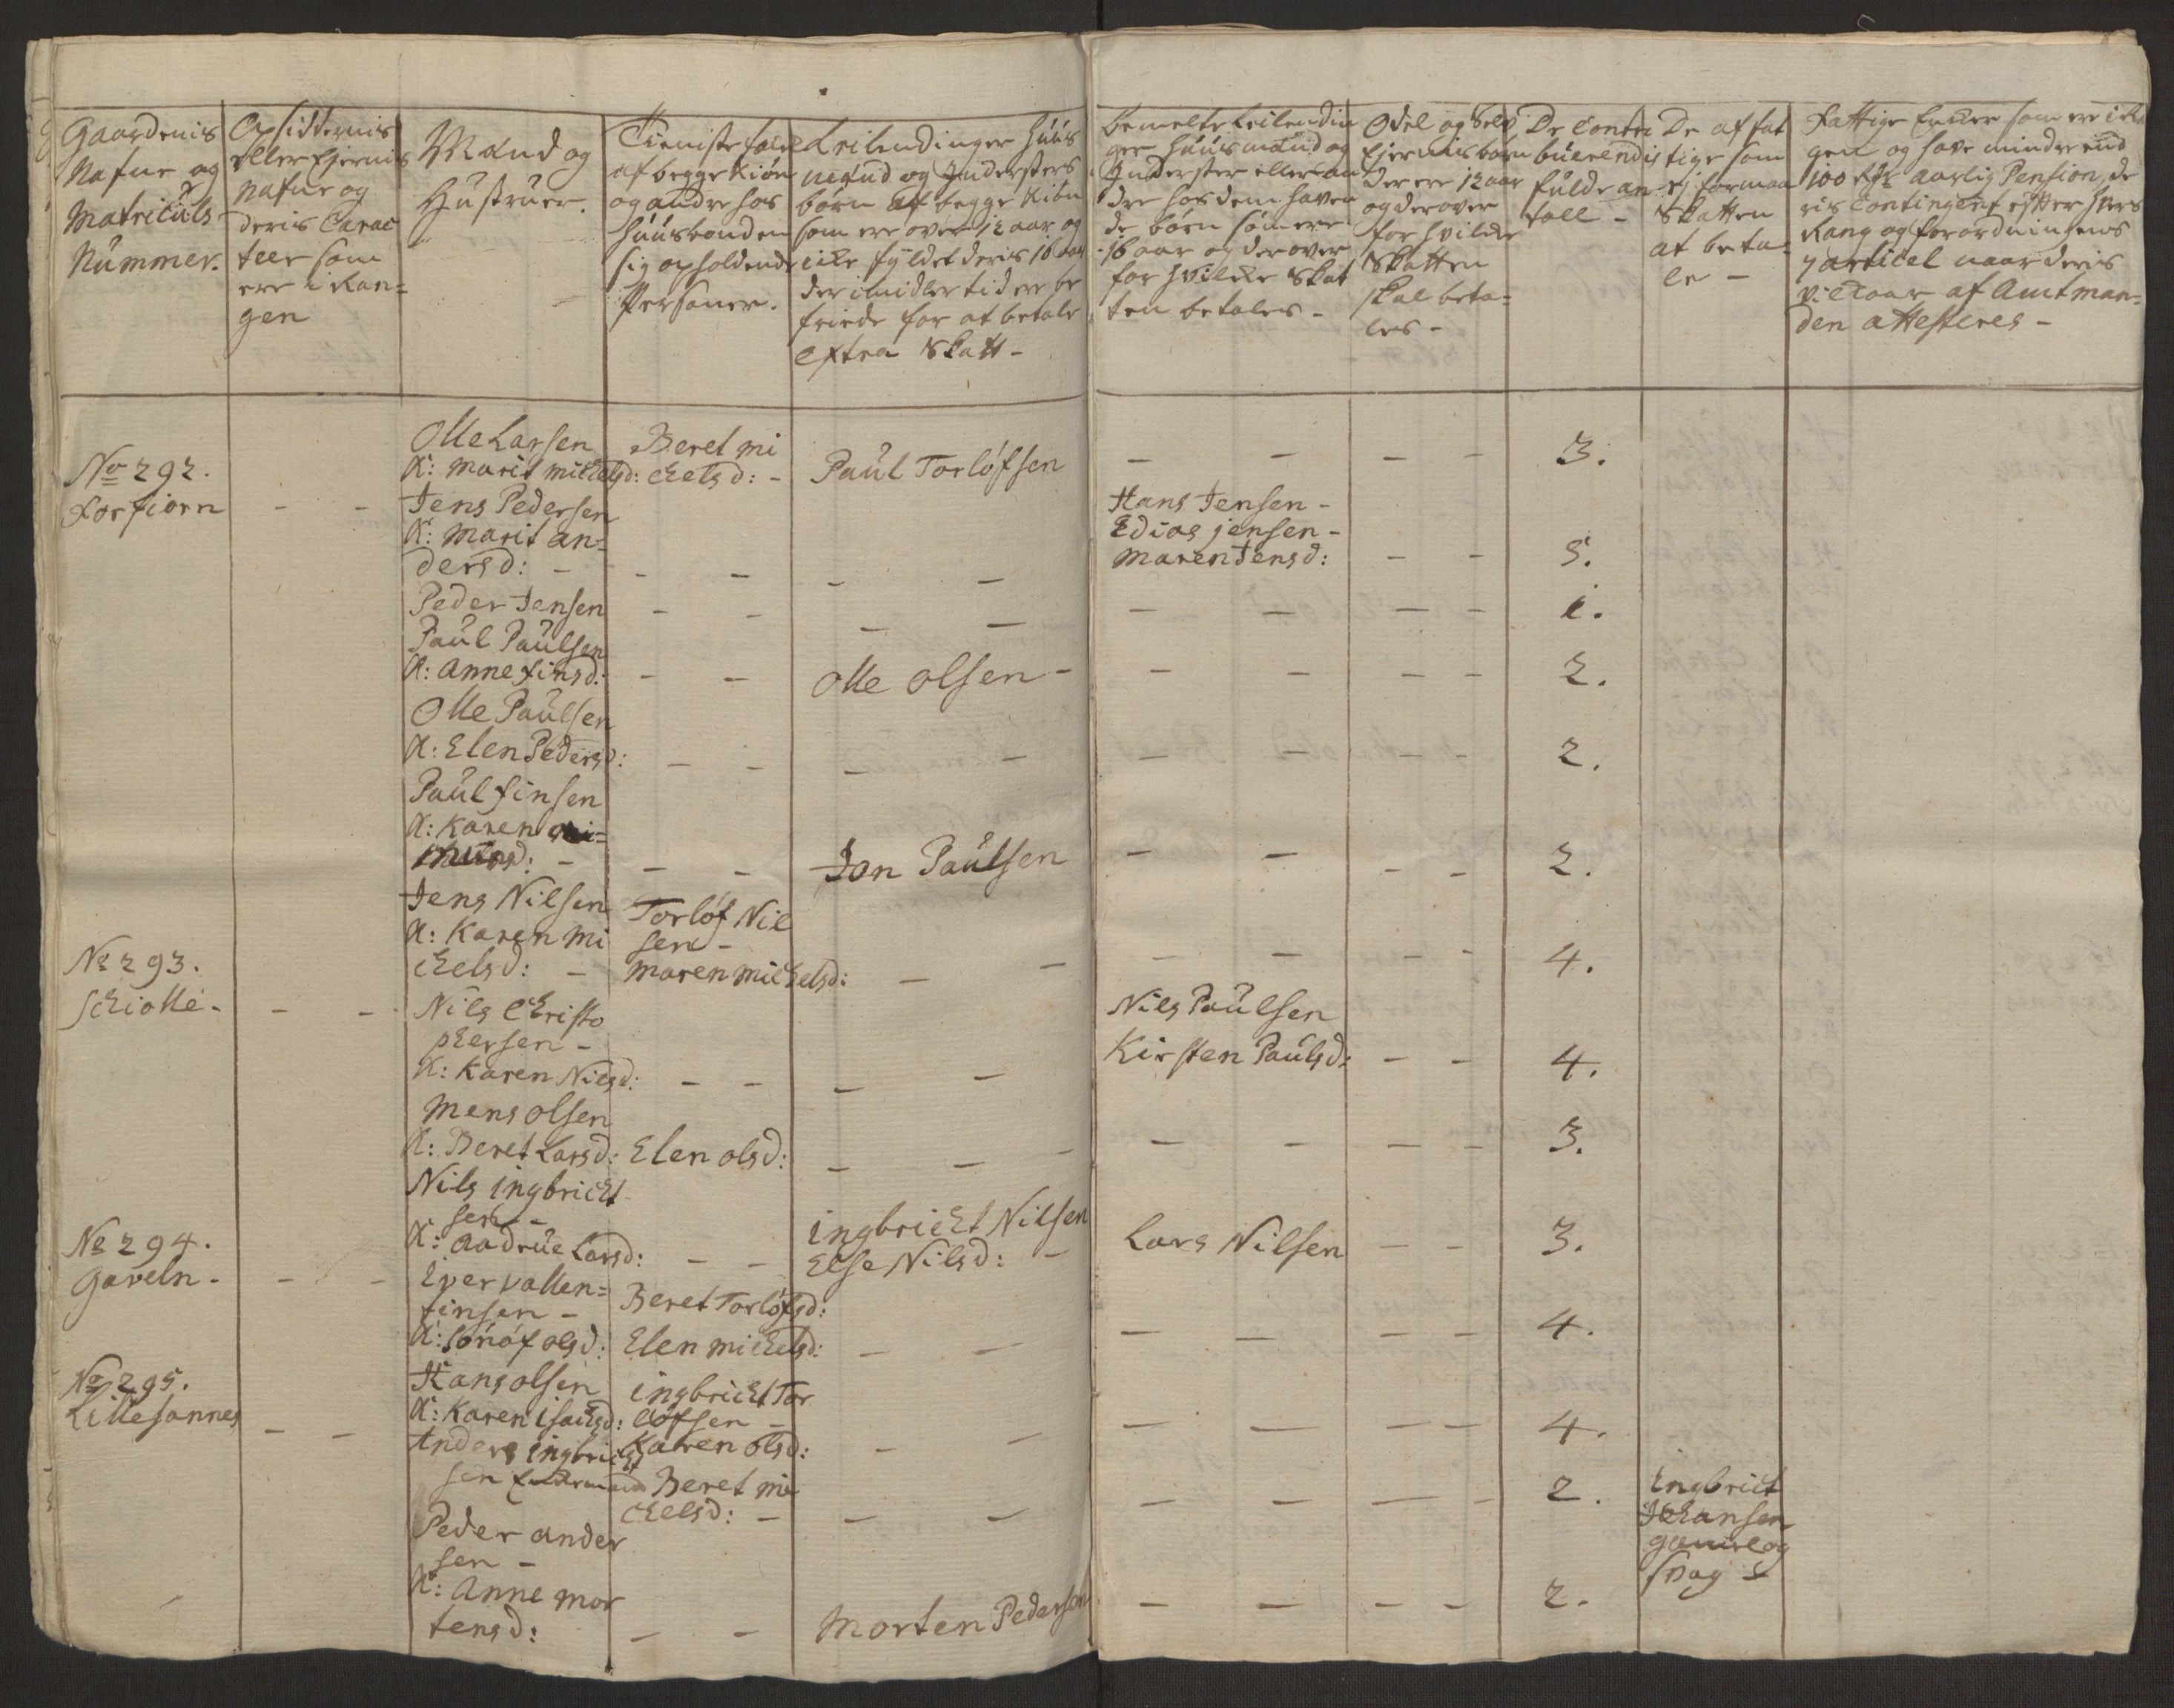 Gaardenis
Nafne og
Matriculs
Nummer.
Opsiddernis
eller Ejernis
Nafne og
deris Carac
teer som
ere i Ran=
gen
Mænd og
Hustruer.
Tieniste folk
af begge Kiøn
og andre hos
huusbonden
sig opholdende
Persohner.
Leilendinger Huus
mænd og Inderster
børn af begge Kiøn
som ere over 12 aar og
icke fyldet deris 16 aar
der imidlertid ere be
friede for at betale
Extra Skatt -
Bemelte Leilendin
ger huusmænd og
Inderster eller an
dre hos dem haven
de børn som ere
16 aar og derover
for hvilcke Skat
ten betales -
Odel og Selv
Ejernis børn
der ere 12 aar
og derover
for hvilcke
Skatten
skal beta=
les -
De Contri
buerendis
fulde an
tall -
De af fat
tige som
ej formaa
Skatten
at beta=
le -
Fattige Encker som ere i Ra
gen og have mindre end
100 Rdr aarlig Pension, de
ris Contingent efter hvers
Rang og forordningens
7 articel naar deris
vilckaar af Amtman=
den attesteres -
No 292.
Forfiorn - -
Olle Larsen
K: Marit Michelsd:
Beret Mi
chelsd: -
Paul Torlofsen
- - - - 3.
Jens Pedersen
K: Marit An=
dersd: - - - - -
Hans Jensen -
Edias Jensen -
Maren Jensd: - - 5.
Peder Jensen - - - - - - - - 1.
Paul Paulsen
K: Anne Finsd: - - Olle Olsen - - - - - 2.
Olle Paulsen
K: Elen Pedersd: - - - - - - - - 2.
Paul Finsen
K: Karen
- - - Jon Paulsen - - - - 2.
No 293.
Schiolle - - -
Jens Nilsen
K: Karen Mi
chelsd: -
Torlof Nil
sen -
Maren Michelsd: - - - - - - 4.
Nils Christo
phersen -
K: Karen Nilsd: - - - -
Nils Paulsen
Kirsten Paulsd: - - 4.
Mens Olsen
K: Beret Larsd: Elen Olsd: - - - - - - - 3.
No 294.
Gaveln - - -
Nils Ingbricht
sen -
K: Aadrue Larsd: - -
Ingbricht Nilsen
Else Nilsd: -
Lars Nilsen - - 3.
Iver Vallen=
tinsen -
K: Sønof Olsd:
Beret Torlofsd:
Elen Michelsd: - - - - - - 4.
No 295.
Lillesannes - -
Hans Olsen
K: Karen Isachsd:
Ingbricht Tor
lofsen -
Karen Olsd: - - - - - - 4.
Anders Ingbricht
sen Enckemand
Beret Mi
chelsd: - - - - - - - 2.
Ingbrict
Johansen
gamel og
svag -
Peder Ander
sen -
K: Anne Mor
tensd: - - Morten Pedersen - - - - 2.